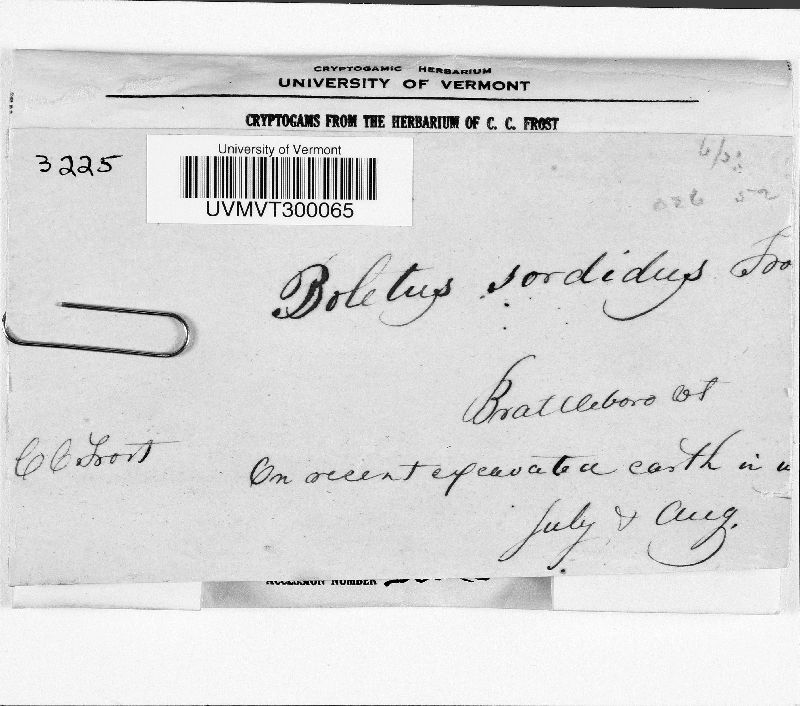 CRYPTOGAMIC HERBARIUM
UNIVERSITY OF VERMONT
CRYPTOGAMS FROM THE HERBARIUM OF C. C. FROST
3225
University of Vermont
UVMVT300065
Boletus sordidus Fro
Brattleboro Vt
C C Frost
On recent excavated earth in w
July & Aug.
ACCESSION NUMBER